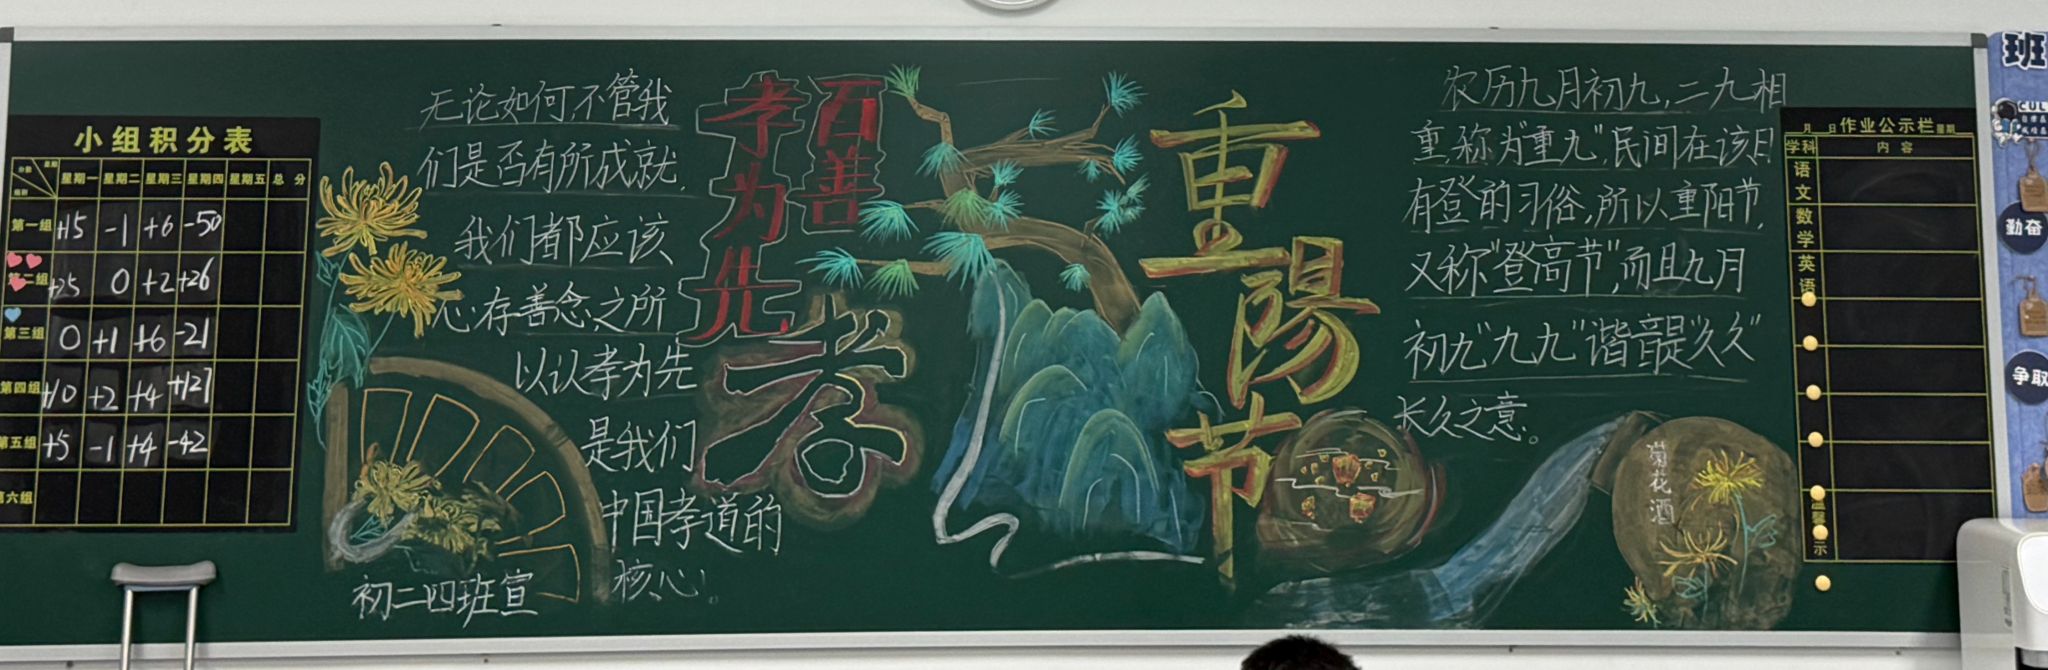 小组积分表
分数 星期 组别 星期一 星期二 星期三 星期四 星期五 总分
第一组 +15 -1 +6 -50
第二组 +25 0 +2 +26
第三组 0 +1 +6 -21
第四组 +10 +2 +4 +127
第五组 +5 -1 +4 -42
第六组
无论如何,不管我
们是否有所成就,
我们都应该
心存善念,之所
以认孝为先
是我们
中国孝道的
核心!
初二四班宣
百善
孝为先
孝
重陽节
农历九月初九,二九相
重,称为"重九",民间在该日
有登的习俗,所以重阳节,
又称"登高节",而且九月
初九"九九"谐音是"久久"
长久之意。
菊花酒
月 日 作业公示栏 星期
学科 内容
语文
数学
英语
温
示
班
CUL
勤奋
争取